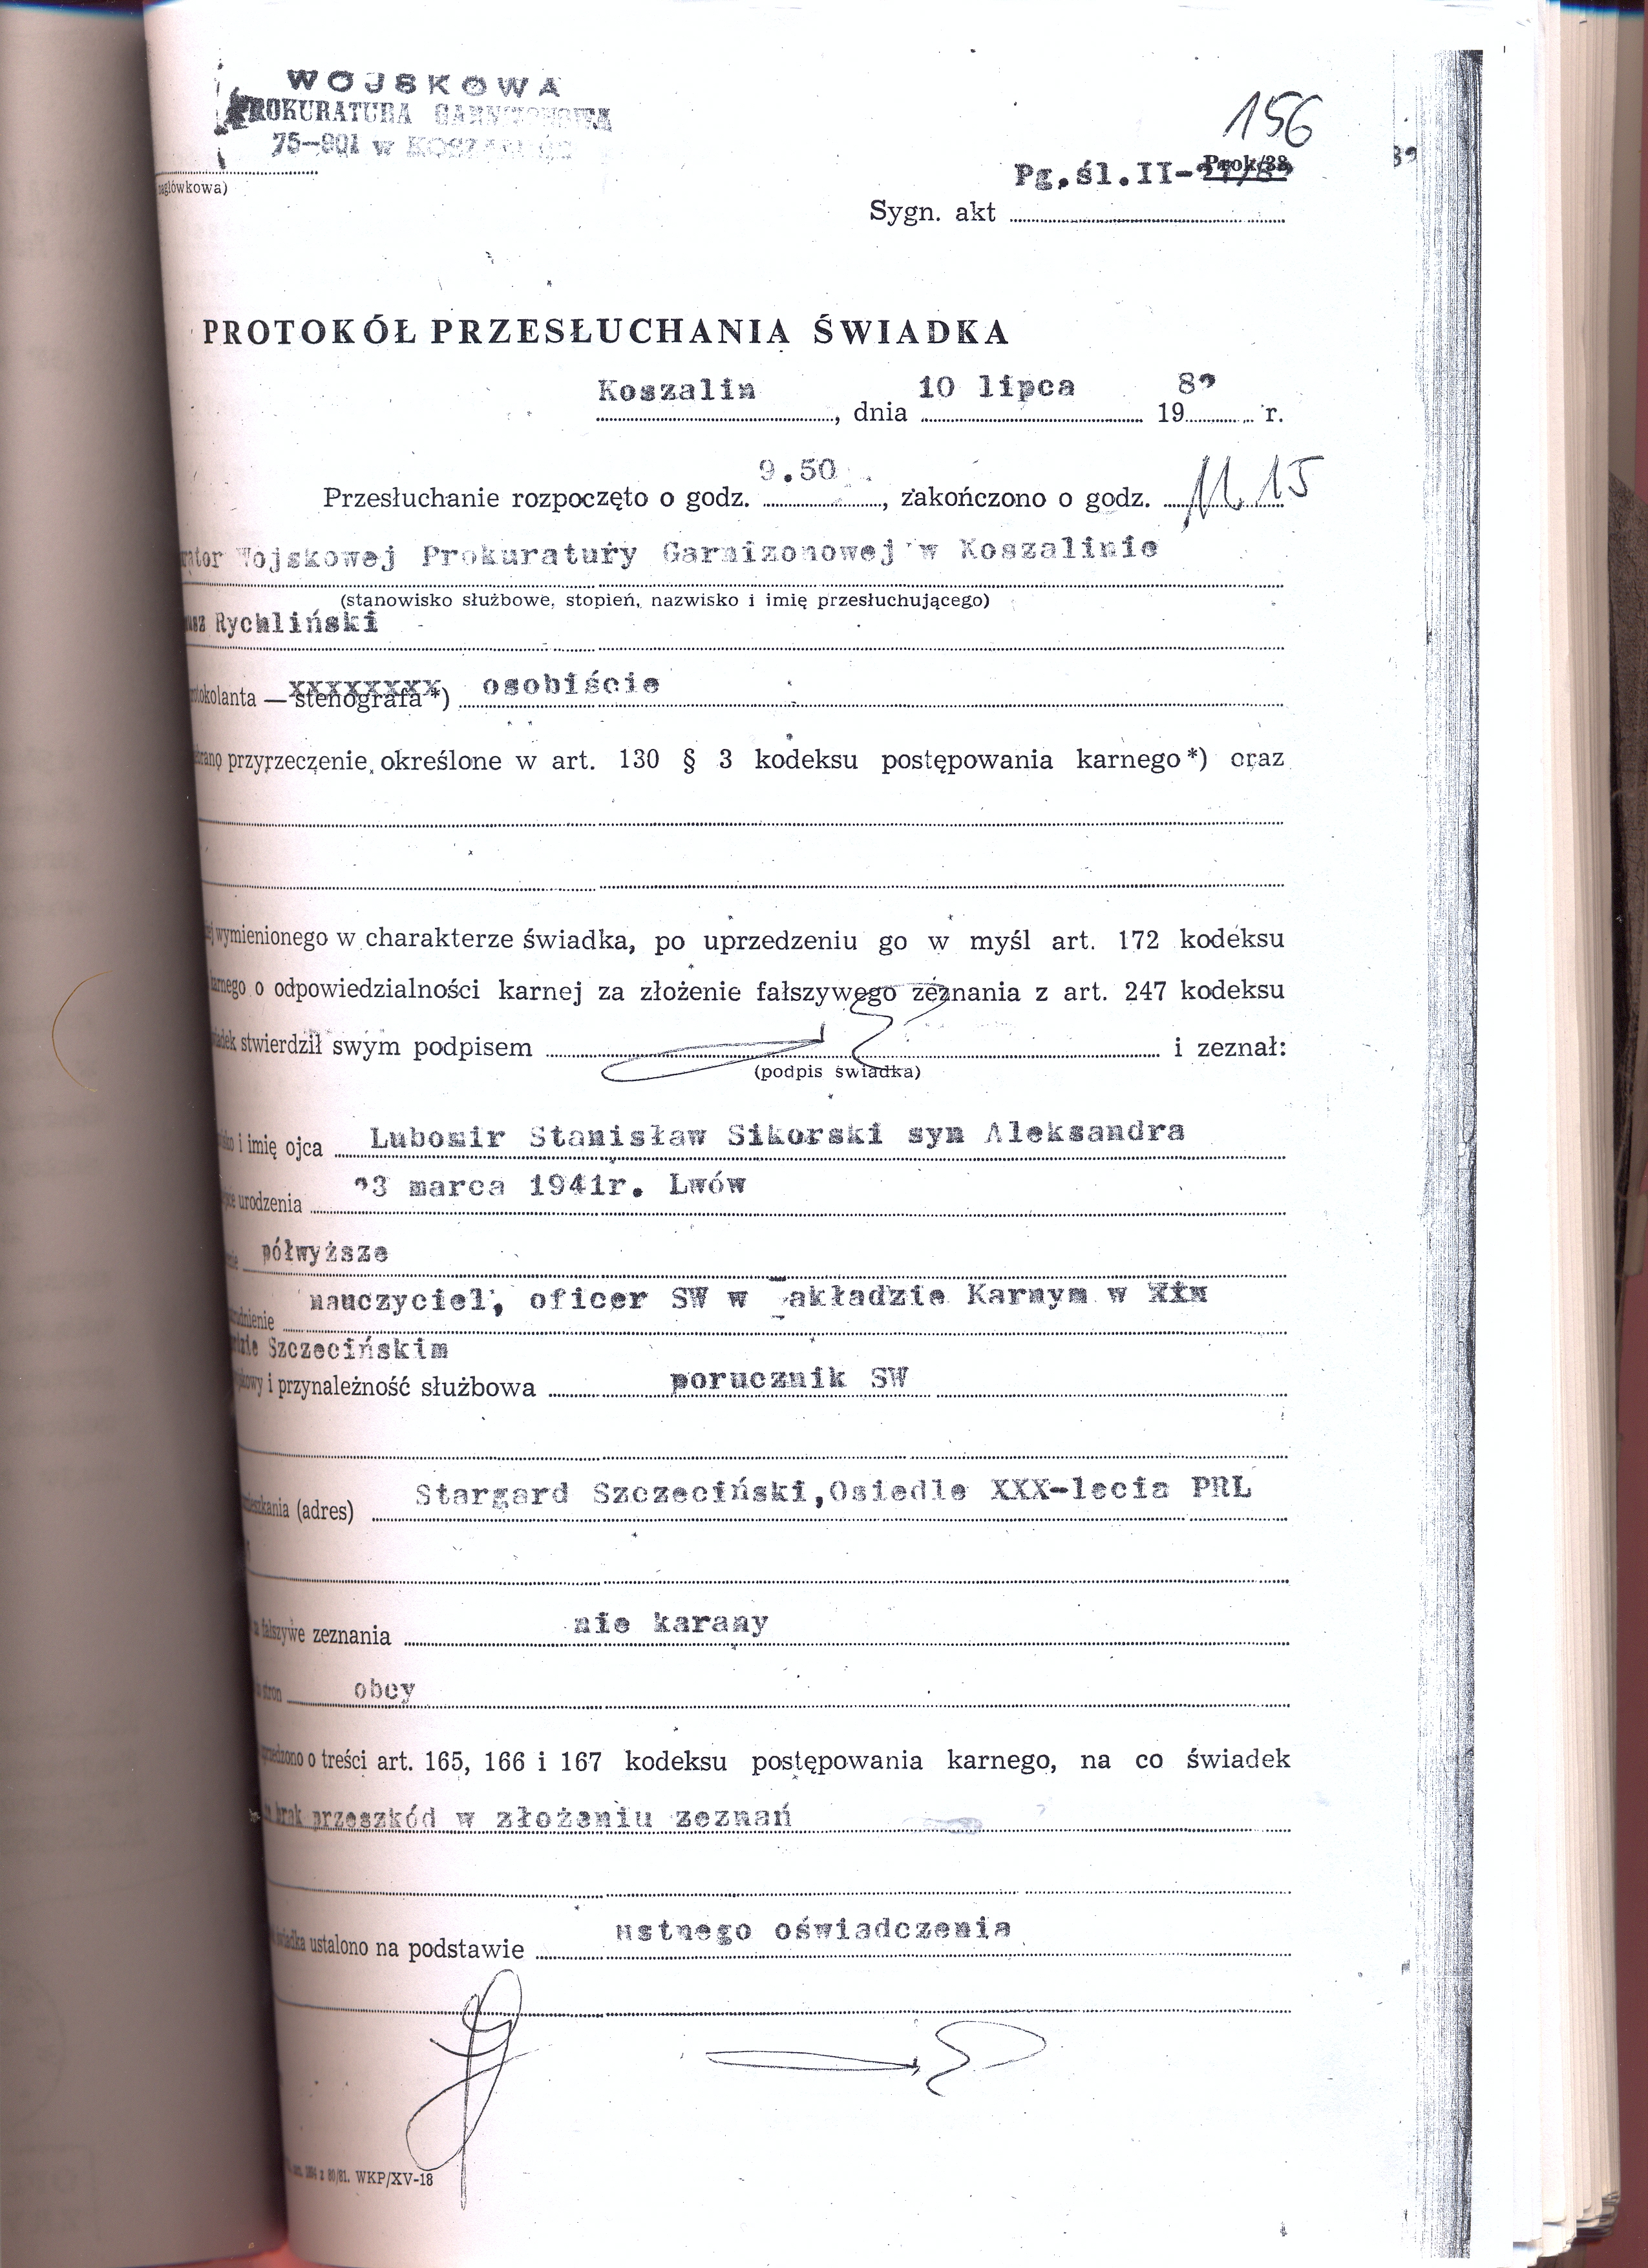 WOJSKOWA
PROKURATURA GARNIZONOWA
75-901 w KOSZALINIE
156
Prok/38
Pg.śl.II-
zagłówkowa)
Sygn. akt
PROTOKÓŁ PRZESŁUCHANIA ŚWIADKA
Koszalin, dnia 10 lipca 19 82 r.
Przesłuchanie rozpoczęto o godz. 9.50, zakończono o godz. 11.15
rator Wojskowej Prokuratury Garnizonowej w Koszalinie
(stanowisko służbowe, stopień, nazwisko i imię przesłuchującego)
usz Rychliński
otokolanta — stenografa *) osobiście
ebrano przyrzeczenie określone w art. 130 § 3 kodeksu postępowania karnego *) oraz
ej wymienionego w charakterze świadka, po uprzedzeniu go w myśl art. 172 kodeksu
karnego o odpowiedzialności karnej za złożenie fałszywego zeznania z art. 247 kodeksu
wiadek stwierdził swym podpisem i zeznał:
(podpis świadka)
i imię ojca Lubomir Stanisław Sikorski syn Aleksandra
urodzenia 23 marca 1941r. Lwów
półwyższe
nauczyciel, oficer SW w akładzie Karnym w
Szczecińskim
i przynależność służbowa porucznik SW
(adres) Stargard Szczeciński,Osiedle XXX-lecia PRL
fałszywe zeznania nie karany
stron obcy
przedzono o treści art. 165, 166 i 167 kodeksu postępowania karnego, na co świadek
brak przeszkód w złożeniu zeznań
świadka ustalono na podstawie ustnego oświadczenia
80/81. WKP/XV-18